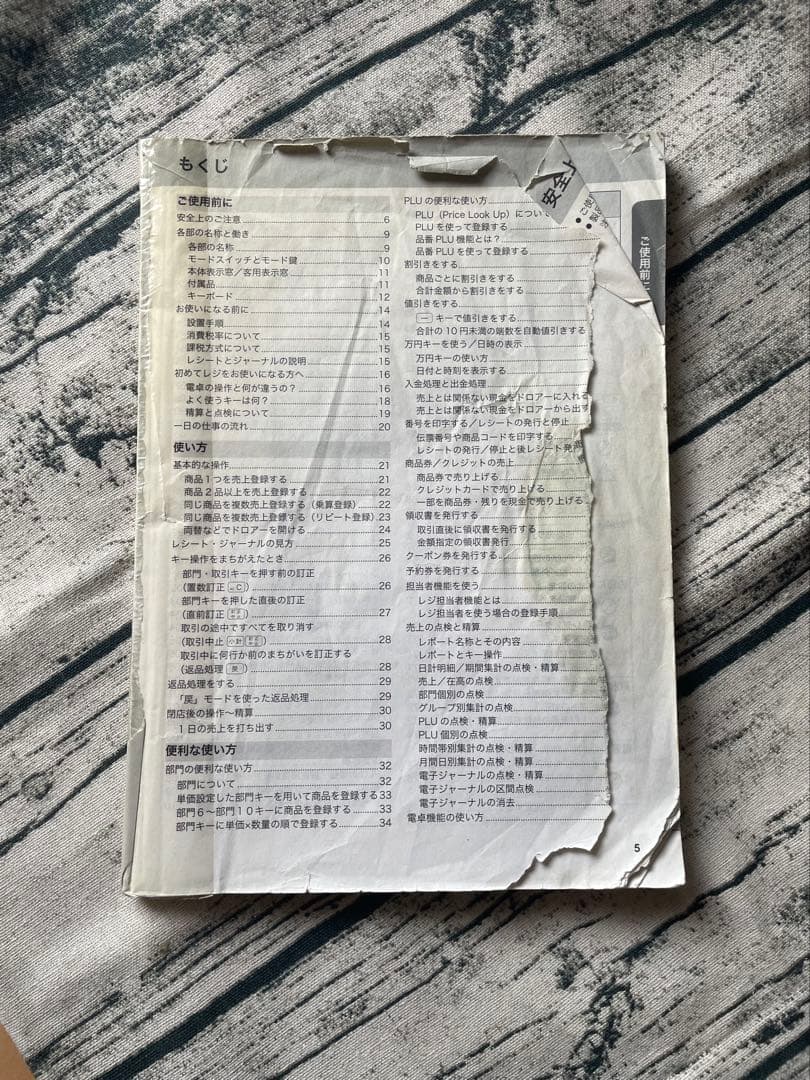 もくじ
ご使用前に
安全上のご注意 6
各部の名称と働き 9
各部の名称 9
モードスイッチとモード鍵 10
本体表示窓／客用表示窓 11
付属品 11
キーボード 12
お使いになる前に 14
設置手順 14
消費税率について 15
課税方式について 15
レシートとジャーナルの説明 15
初めてレジをお使いになる方へ 16
電卓の操作と何が違うの？ 16
よく使うキーは何？ 18
精算と点検について 19
一日の仕事の流れ 20
使い方
基本的な操作 21
商品１つを売上登録する 21
商品２品以上を売上登録する 22
同じ商品を複数売上登録する（乗算登録） 22
同じ商品を複数売上登録する（リピート登録） 23
両替などでドロアーを開ける 24
レシート・ジャーナルの見方 25
キー操作をまちがえたとき 26
部門・取引キーを押す前の訂正
（置数訂正 C ） 26
部門キーを押した直後の訂正
（直前訂正 ） 27
取引の途中ですべてを取り消す
（取引中止 小計 ） 28
取引中に何行か前のまちがいを訂正する
（返品処理 戻 ） 28
返品処理をする 29
「戻」モードを使った返品処理 29
閉店後の操作～精算 30
１日の売上を打ち出す 30
便利な使い方
部門の便利な使い方 32
部門について 32
単価設定した部門キーを用いて商品を登録する 33
部門６～部門１０キーに商品を登録する 33
部門キーに単価×数量の順で登録する 34
PLU の便利な使い方
PLU（Price Look Up）につい
PLU を使って登録する
品番 PLU 機能とは？
品番 PLU を使って登録する
割引きをする
商品ごとに割引きをする
合計金額から割引きをする
値引きをする
－ キーで値引きをする
合計の 10 円未満の端数を自動値引きする
万円キーを使う／日時の表示
万円キーの使い方
日付と時刻を表示する
入金処理と出金処理
売上とは関係ない現金をドロアーに入れる
売上とは関係ない現金をドロアーから出す
番号を印字する／レシートの発行と停止
伝票番号や商品コードを印字する
レシートの発行／停止と後レシート発
商品券／クレジットの売上
商品券で売り上げる
クレジットカードで売り上げる
一部を商品券・残りを現金で売り上げる
領収書を発行する
取引直後に領収書を発行する
金額指定の領収書発行
クーポン券を発行する
予約券を発行する
担当者機能を使う
レジ担当者機能とは
レジ担当者を使う場合の登録手順
売上の点検と精算
レポート名称とその内容
レポートとキー操作
日計明細／期間集計の点検・精算
売上／在高の点検
部門個別の点検
グループ別集計の点検
PLU の点検・精算
PLU 個別の点検
時間帯別集計の点検・精算
月間日別集計の点検・精算
電子ジャーナルの点検・精算
電子ジャーナルの区間点検
電子ジャーナルの消去
電卓機能の使い方
安全上
ご使用前に
5